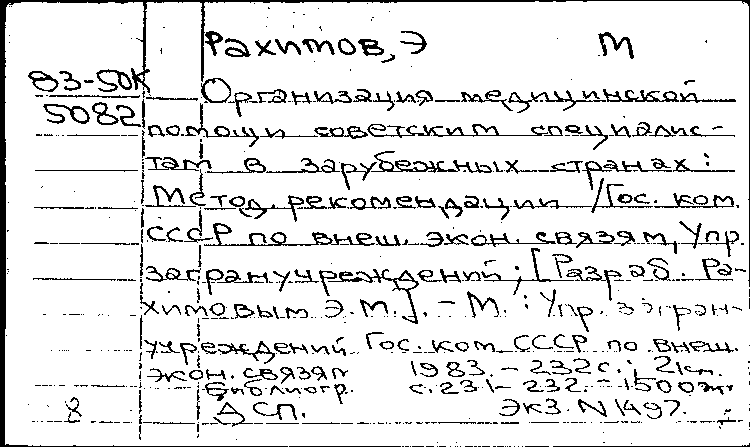 Рахимов, Э М
83-50К
5082
Организация медицинской
помощи советским специалис-
там в зарубежных странах:
Метод. рекомендации /Гос. ком.
СССР по внеш. экон. связям, Упр.
загранучреждений; [Разраб. Ра-
химовым Э.М.]. - М. : Упр. загран-
учреждений Гос. ком. СССР по внеш.
экон. связям 1983. - 232 с.;
Библиогр. с. 231 - 232. - 1500
8 ДСП. Экз. N 1497.